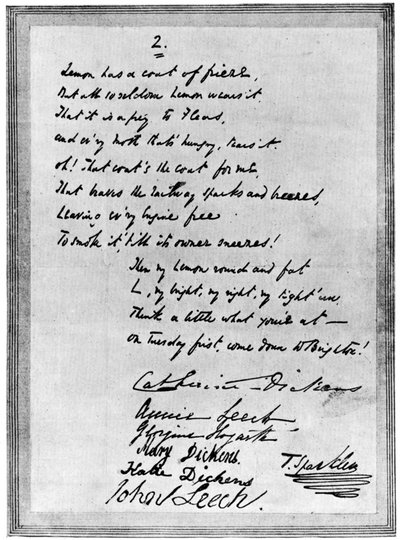 2.
Lemon has a coat of frieze,
But all so seldom Lemon wears it,
That it is a prey to Fleas,
and ev'ry moth that's hungry, tears it.
oh! That coat's the coat for me,
That braves the railway sparks and breezes,
Leaving ev'ry Engine free
To smoke it, till its owner sneezes!
Then my Lemon round and fat
L, my bright, my right, my tight 'un,
Think a little what you're at —
On Tuesday first, come down to Brighton!
Catherine Dickens
Annie Leech
Georgina Hogarth
Mary Dickens.
Katie Dickens
T. Sparkler
John Leech.